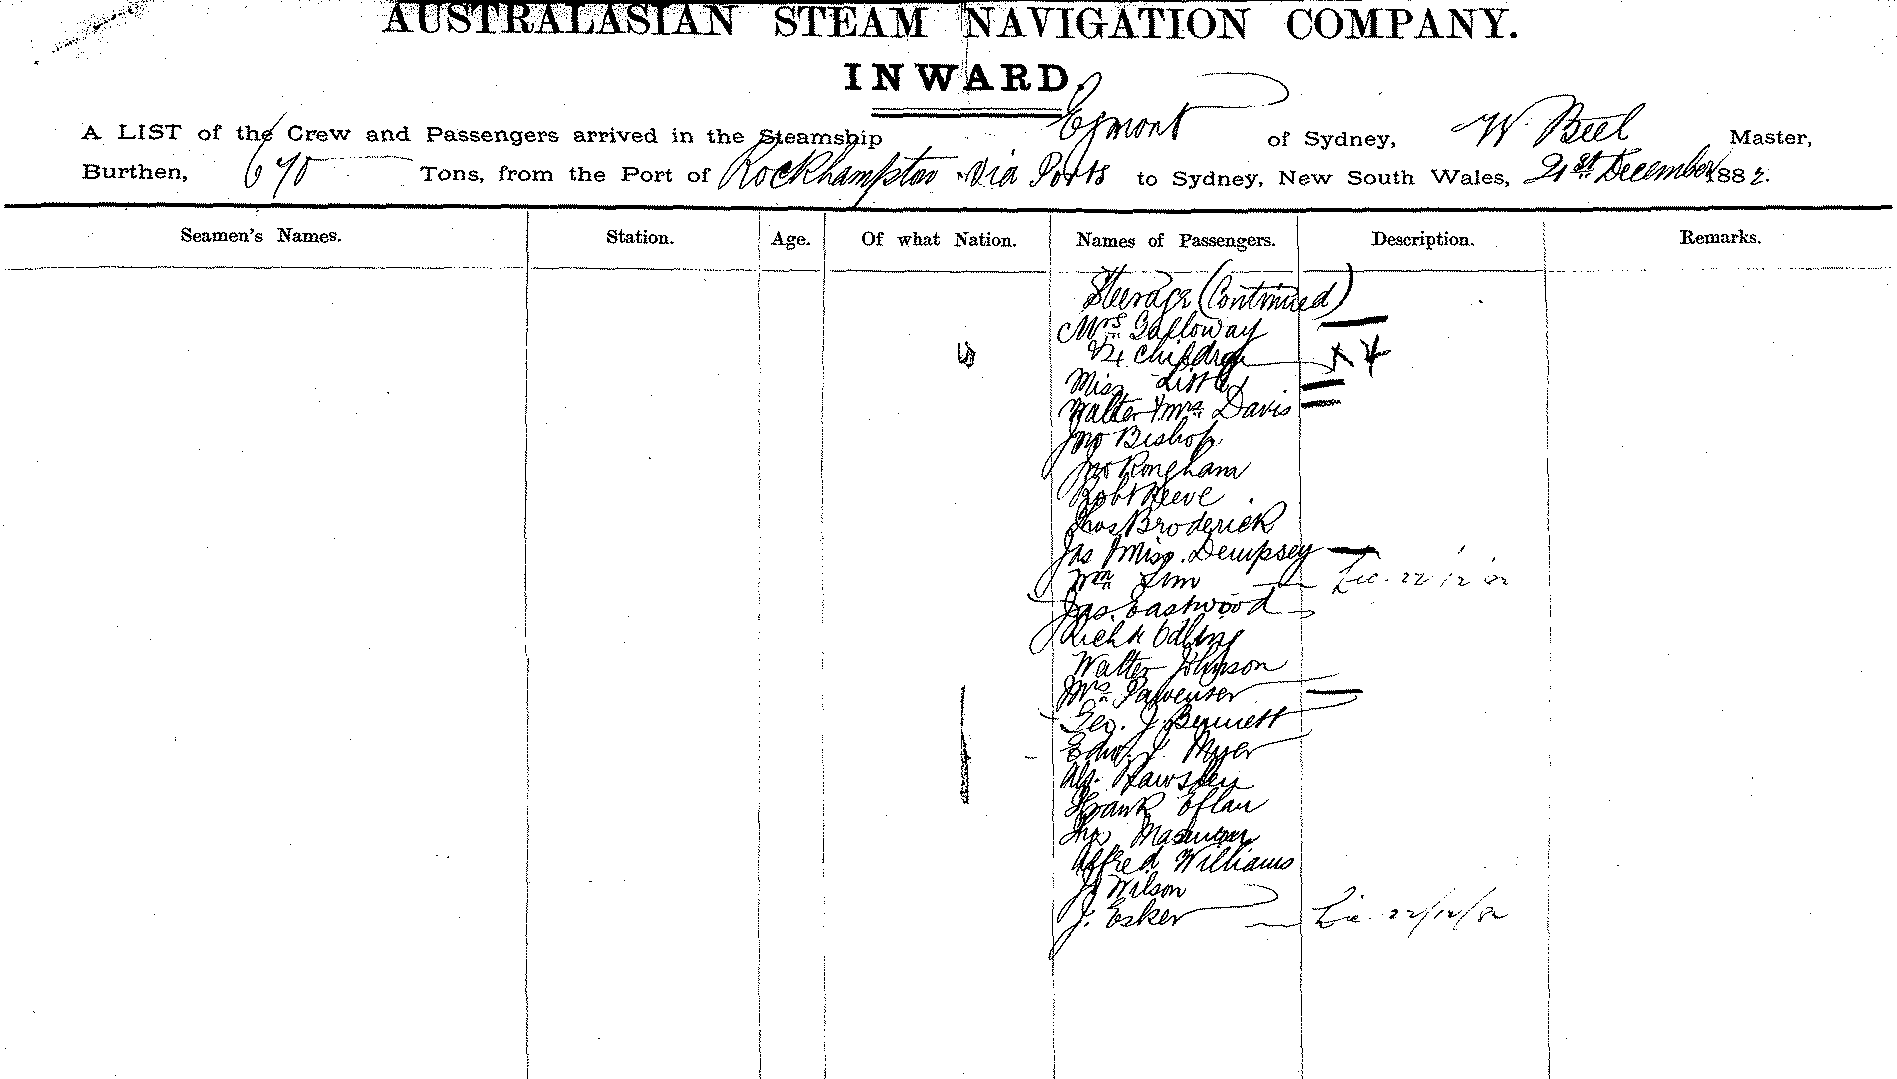 AUSTRALASIAN STEAM NAVIGATION COMPANY.
INWARD.
A LIST of the Crew and Passengers arrived in the Steamship Egmont of Sydney, W. Beel Master,
Burthen, 670 Tons, from the Port of Rockhampton via Ports to Sydney, New South Wales, 21st December 1882.
Seamen's Names. Station. Age. Of what Nation. Names of Passengers. Description. Remarks.
Steerage (Continued)
Mrs Galloway
children
Miss Little
Walter & Mrs Davis
Jno Bishop
Jno
Robt Reeve
Thos Broderick
Jas & Miss Dempsey
Wm Sim
Jas. Eastwood
Richd Odling
Walter Johnson
Mrs
Geo. J. Bennett
Edw. J. Myer
Alf. Rawsley
Frank
Alfred Williams
J. Wilson
J. Esker